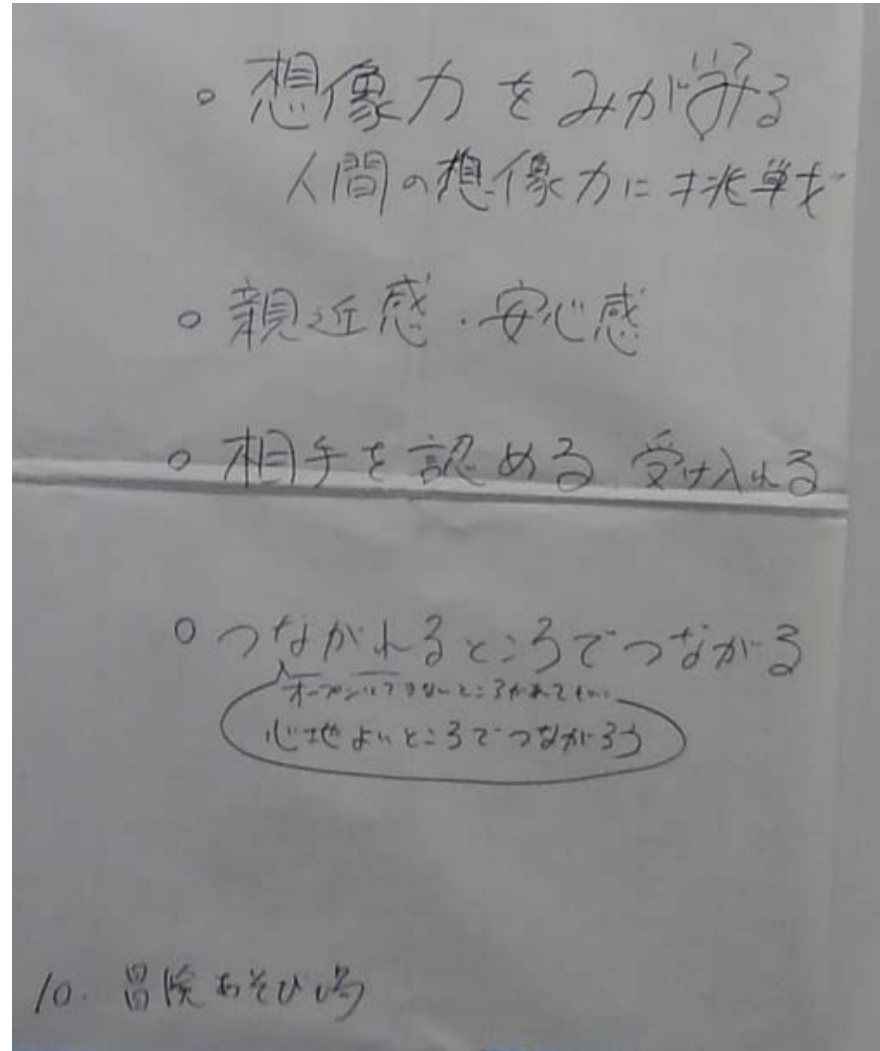 。想像力をみがいてみる
人間の想像力に挑戦
。親近感・安心感
。相手を認める 受け入れる
。つながれるところでつながる
オープンにできないところがあってもいい
心地よいところでつながろう
10. 冒険あそび場